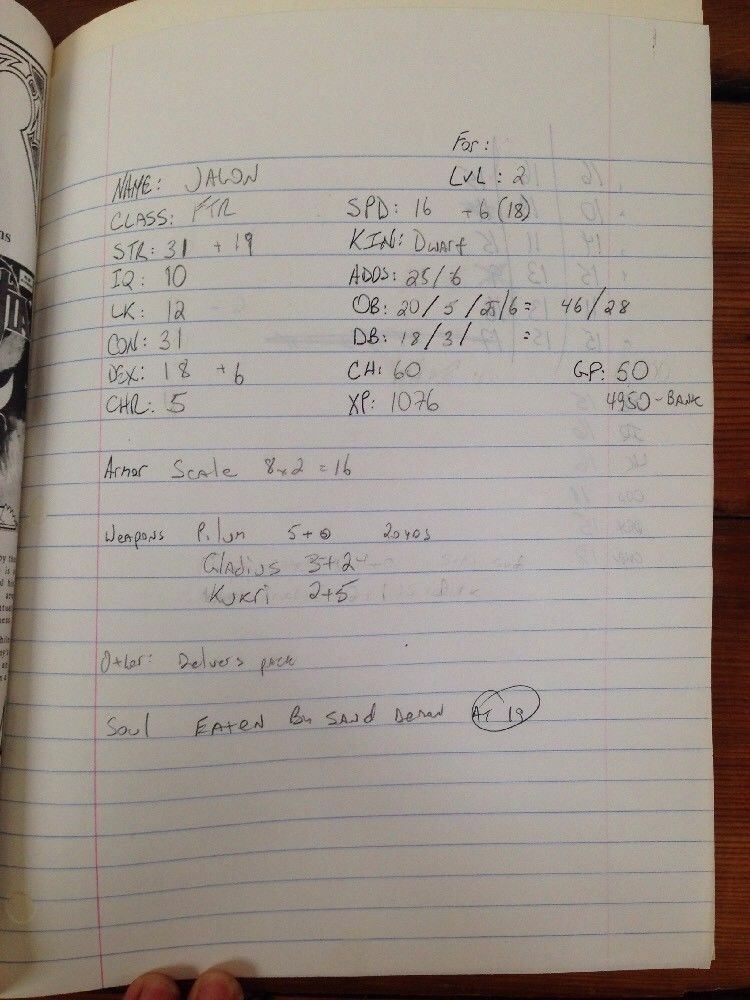 For:
NAME: JALON LVL: 2
CLASS: FTR SPD: 16 +6 (18)
STR: 31 + 19 KIN: Dwarf
IQ: 10 ADDS: 25/6
LK: 12 OB: 20 / 5 / 25/6 = 46/28
CON: 31 DB: 18/3/ =
DEX: 18 +6 CH: 60 GP: 50
CHR: 5 XP: 1076 4950 - BANK
Armor Scale 8x2 = 16
Weapons Pilum 5+0 20yds
Gladius 3+2
Kukri 2+5
Other: Delvers pack
Soul EATEN By SAND Demon AT 19